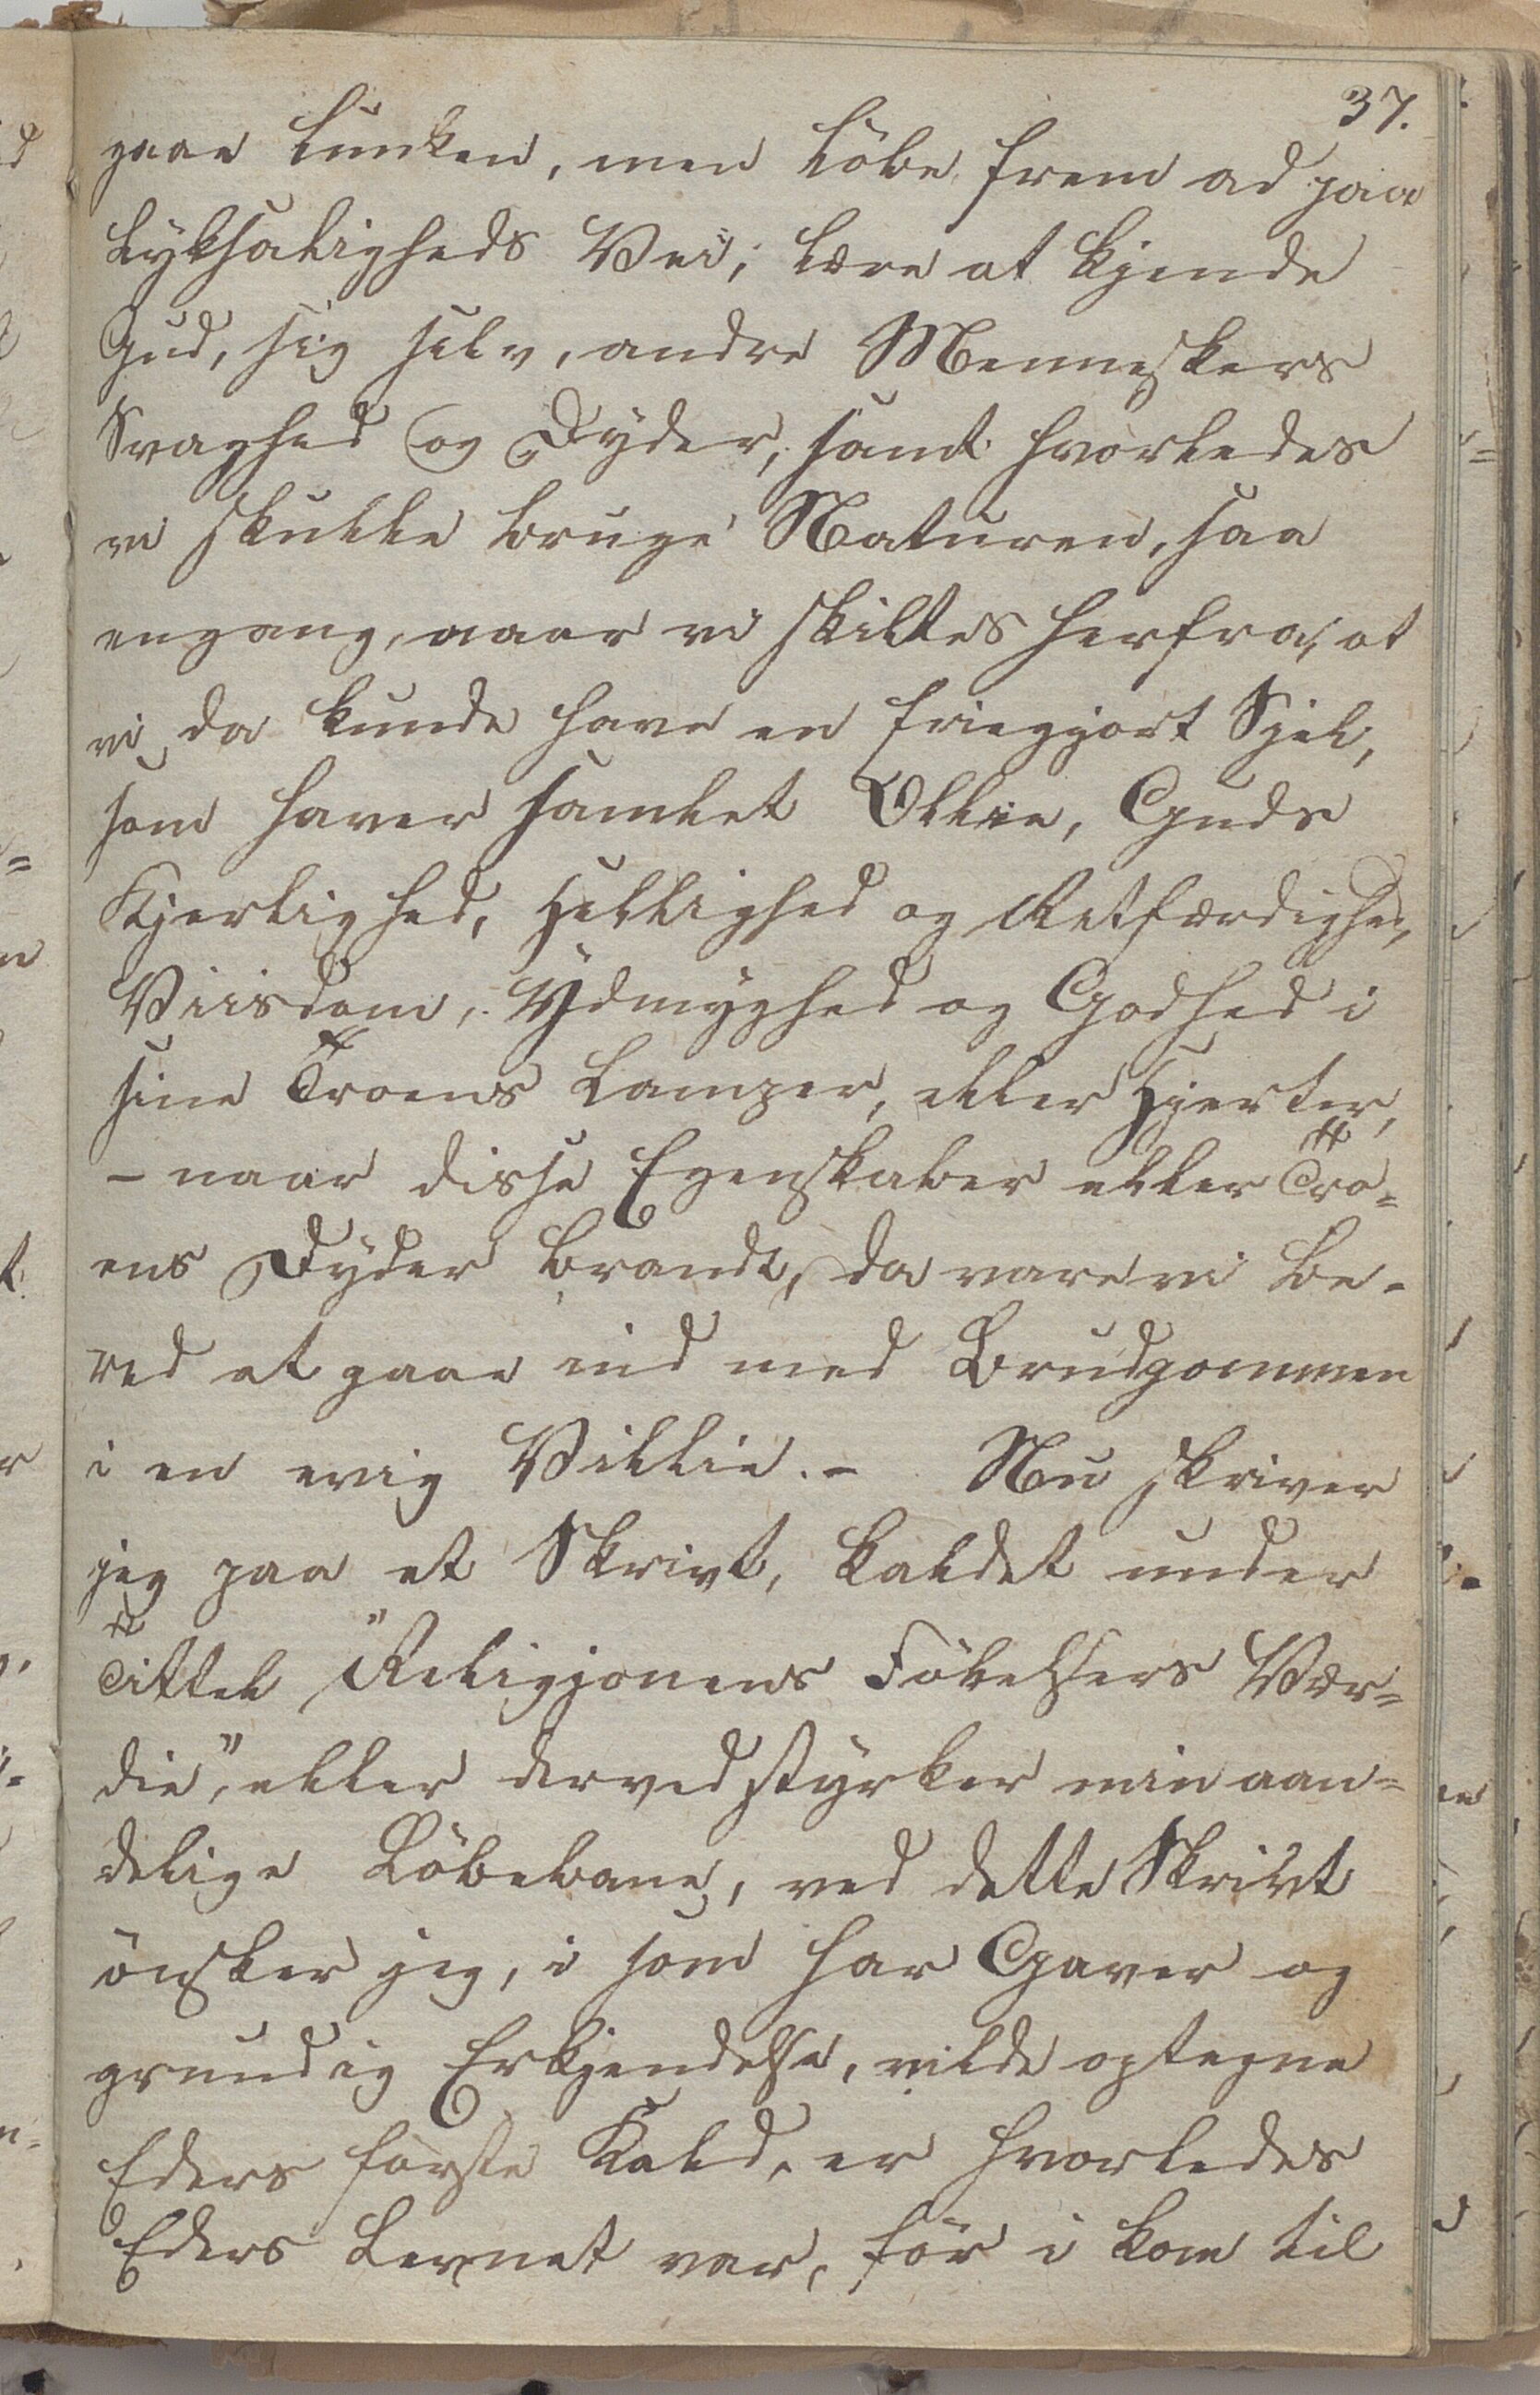 37.
gaae lunken, men löbe frem ad paa
Lyksaligheds Vei; lære at kjende
Gud, sig selv, andre Menneskers
Svaghed og Dyder, samt hvorledes
vi skulle bruge Naturen, saa
engang, naar vi skiltes herfra, at
vi da kunde have en friegjort Sjel,
som haver samlet Ollie, Guds
Kjerlighed, Hellighed og Retfærdighed,
Viisdom, Ydmyghed og Godhed i
sine Troens Lamper, eller Hjerter,
- naar disse Egenskaber eller Tro=
ens Dyder brandt, da vare vi be-
red at gaae ind med Brudgommen
i en evig Villie. - Nu skriver
jeg paa et Skrivt, kaldet under
Tittel "Religjonens Föbelsers Vær=
die", eller derved styrker min aan=
delige Löbebane, ved dette Skrivt
önsker jeg, i som har Gaver og
grundig Erkjendelse, vilde optegne
Eders förste Kald, er hvorledes
Eders Levnet var, för i kom til